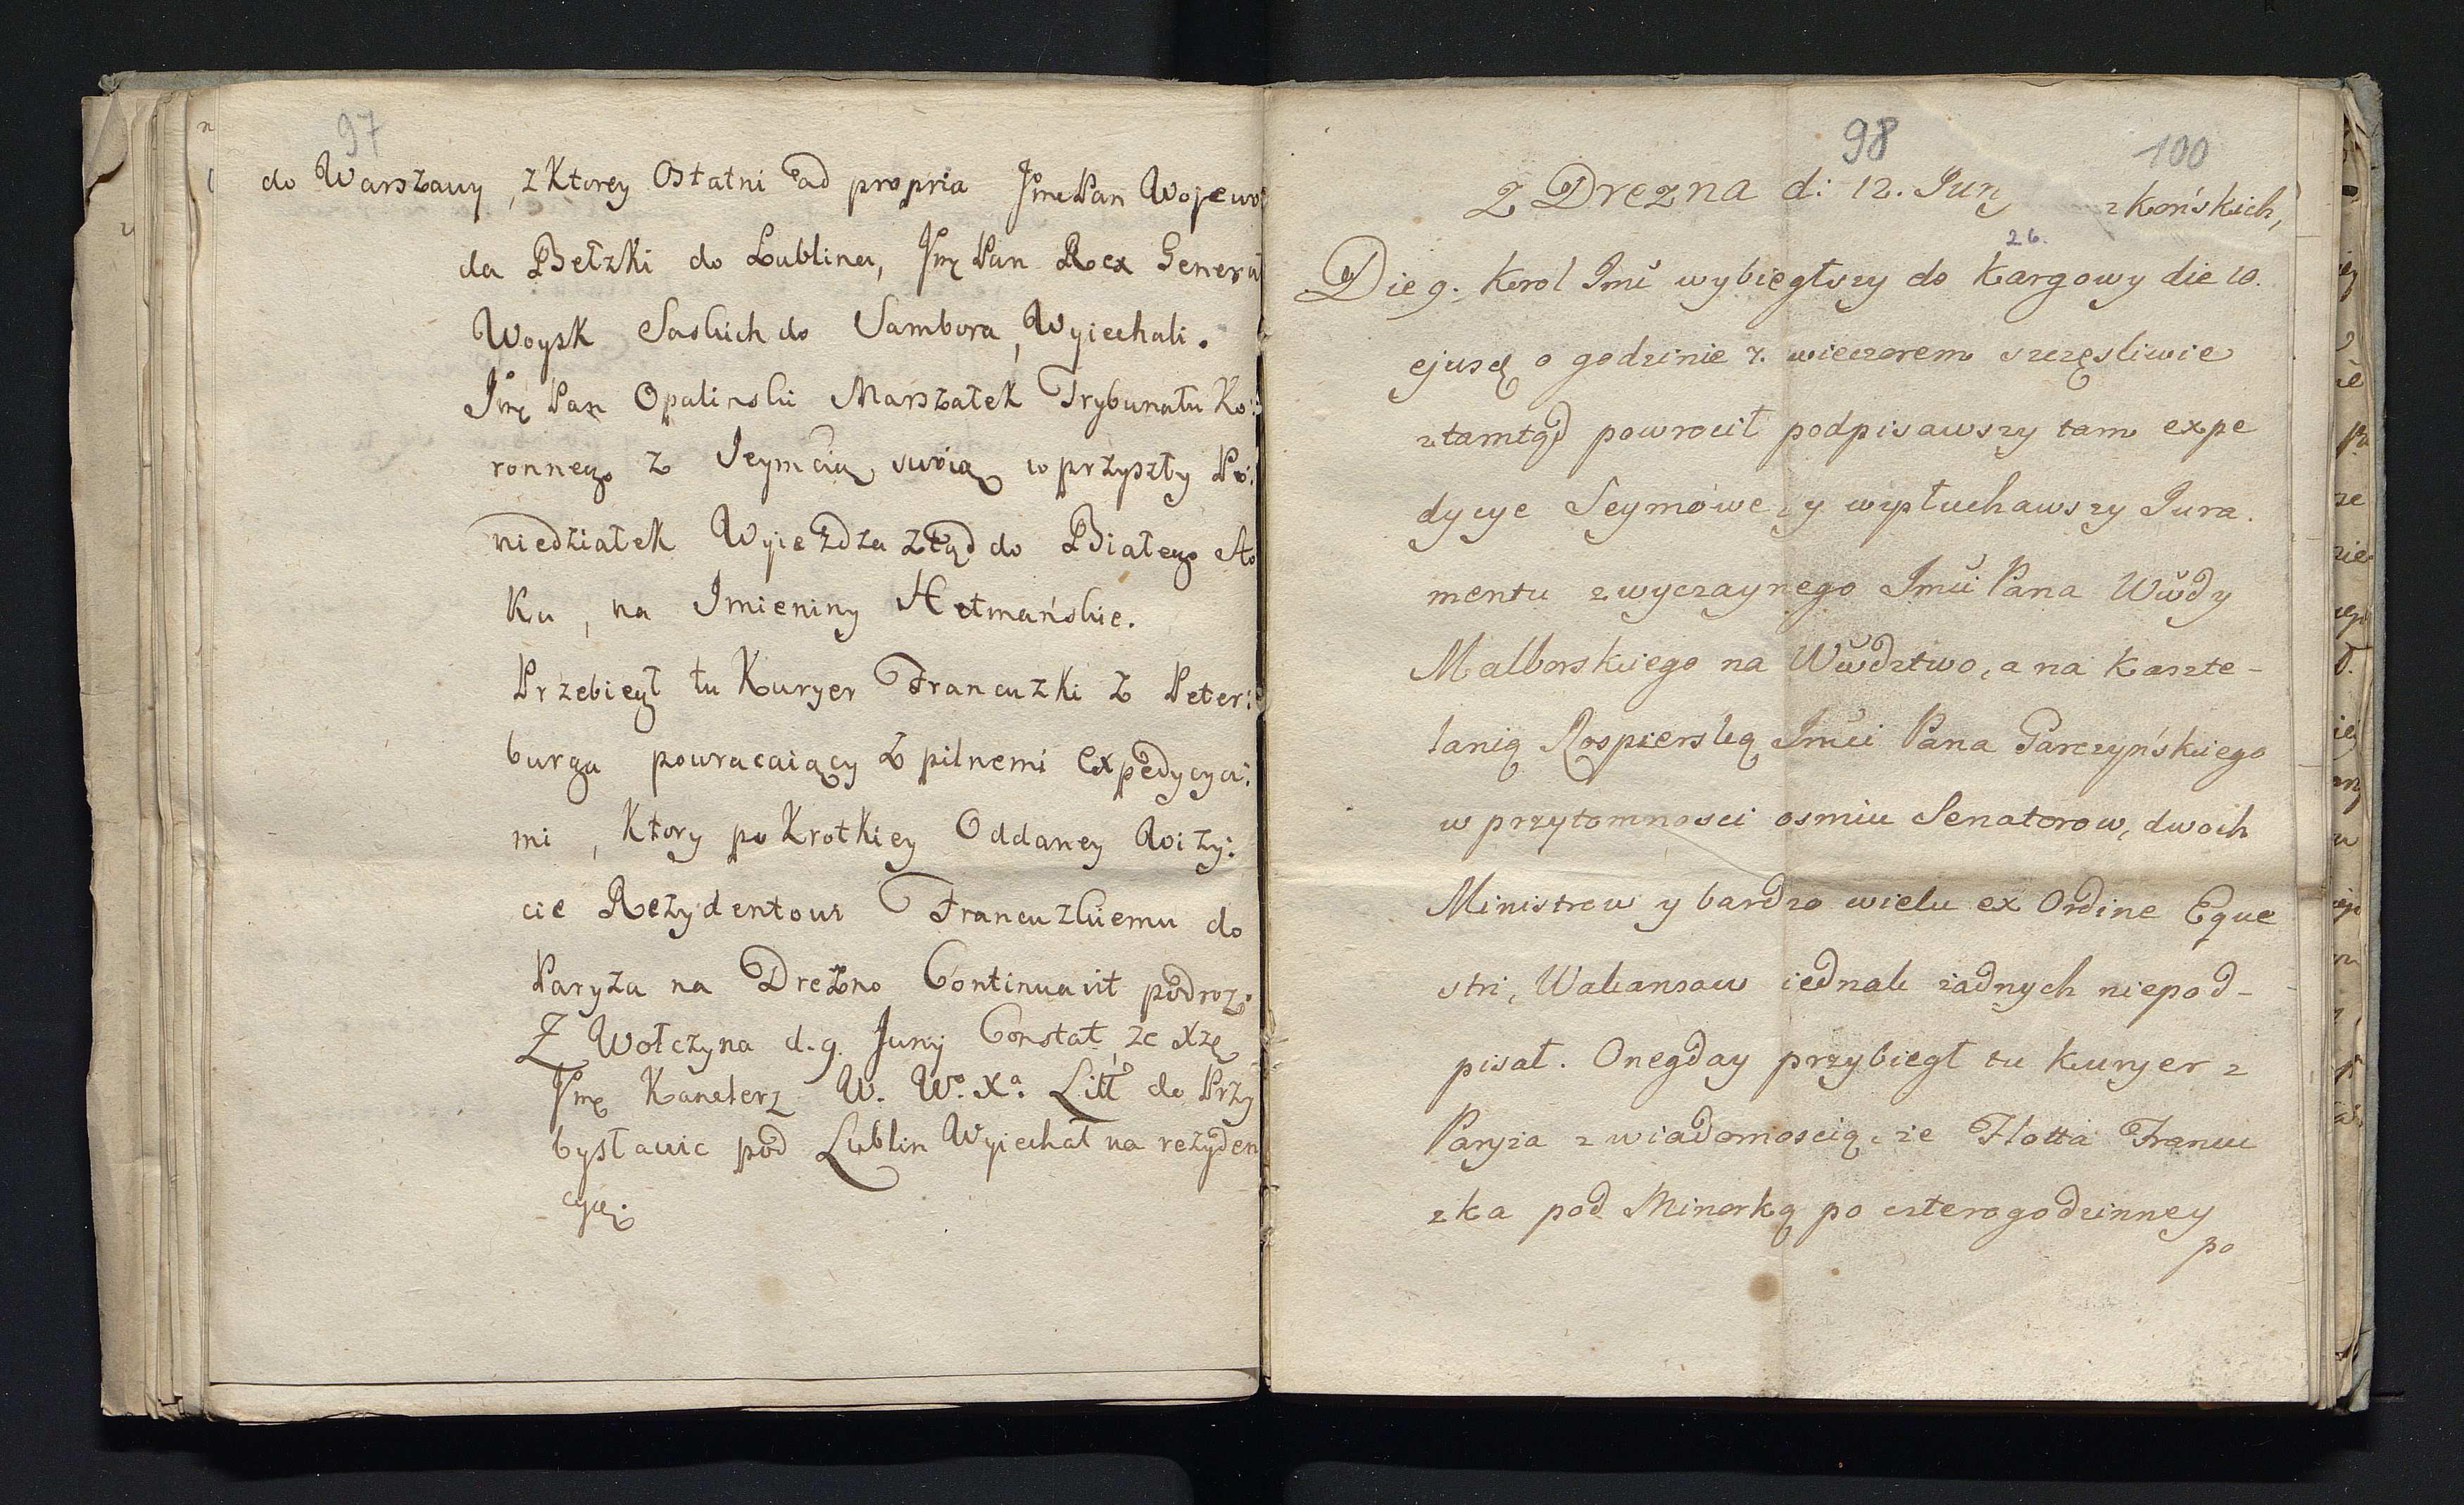 97
do Warszawy, z Ktorey Ostatni ad propria Jmć Pan Wojewo
da Bełzki do Lublina, Jmć Pan Rex Generał
Woysk Saskich do Sambora, Wyiechali.
Jmć Pan Opalinski Marszałek Trybunału Ko:
ronnego z Jeymcią swoią w przyszły Po:
niedziałek Wyieżdza ztąd do Białego Sto
Ku, na Imieniny Hetmańskie.
Przebiegł tu Kuryer Francuzki z Peter:
burga powracaiący z pilnemi Expedycya:
mi, Ktory po Krotkiey Oddaney Wizy:
cie Rezydentowi Francuzkiemu do
Paryża na Drezno Continuavit podroz.
Z Wołczyna d. 9. Junij Constat, ze Xżę
Jmć Kanclerz W. W. Xa. Litt do Przy
bysławic pod Lublin Wyiechał na rezyden
cyę.
98
100
Z Drezna d: 12. Junÿ
z Końskich,
26.
Die 9. Krol Jmć wybiegłszy do Kargowy die 10.
ejusd o godzinie 7. wieczorem szczęsliwie
ztamtąd powrocił podpisawszy tam expe
dycye Seymowe, y wysłuchawszy Jura.
mentu zwyczaynego Jmći Pana Wwdy
Malborskiego na Wwdztwo, a na Kaszte-
lanią Rospierską Jmći Pana Garczyńskiego
w przytomnosci osmiu Senatorow, dwoch
Ministrow y bardzo wielu ex Ordine Eque
stri, Wakansow iednak żadnych niepod-
pisał. Onegday przybiegł tu Kuryer z
Paryża z wiadomoscią, że Flotta Francu
zka pod Minorką po czterogodzinney
po